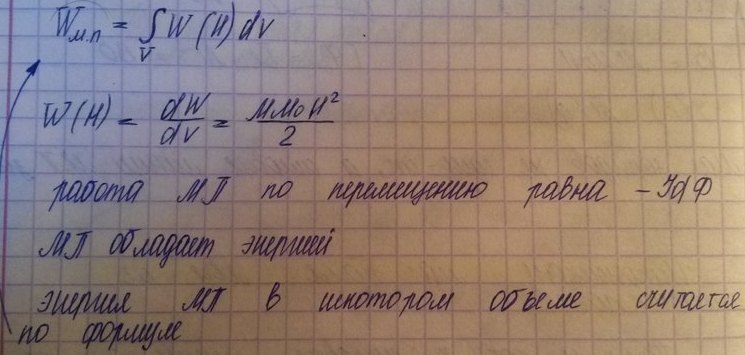 W м.п = ∫ W (H) dV
V
W(H) = dW/dV = ММ₀H²/2
работа МП по перемещению равна – IdФ
МП обладает энергией
энергия МП в некотором объеме считается
по формуле